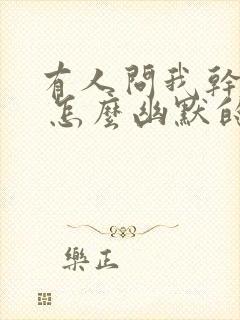 有人問我幹
怎麼幽默的
樂正